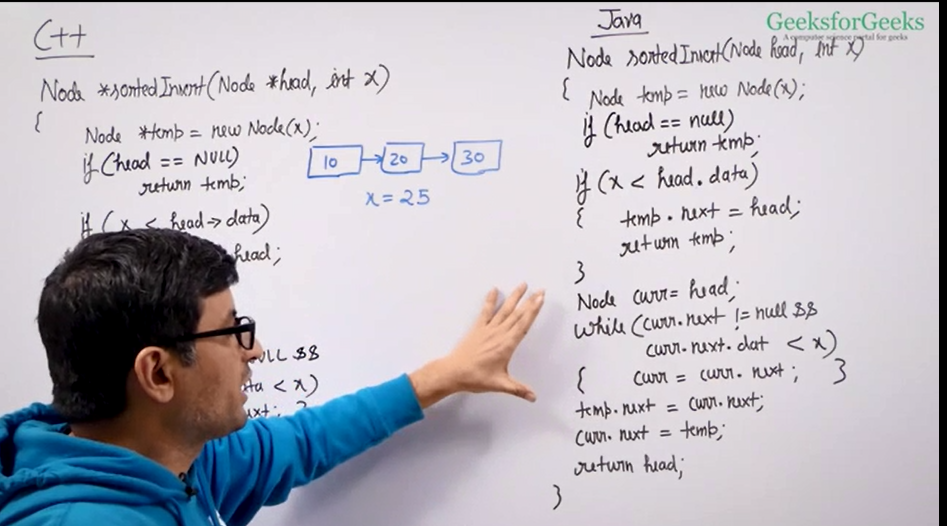 C++
Node *sortedInsert(Node *head, int x)
{
Node *temp = new Node(x);
if (head == NULL)
return temp;
if (x < head→data)
head;
NULL &&
ta < x)
ext; }
10 → 20 → 30
x = 25
Java
GeeksforGeeks
A computer science portal for geeks
Node sortedInsert(Node head, int x)
{
Node temp = new Node(x);
if (head == null)
return temp;
if (x < head.data)
{ temp.next = head;
return temp;
}
Node curr = head;
while (curr.next != null &&
curr.next.dat < x)
{ curr = curr.next; }
temp.next = curr.next;
curr.next = temp;
return head;
}